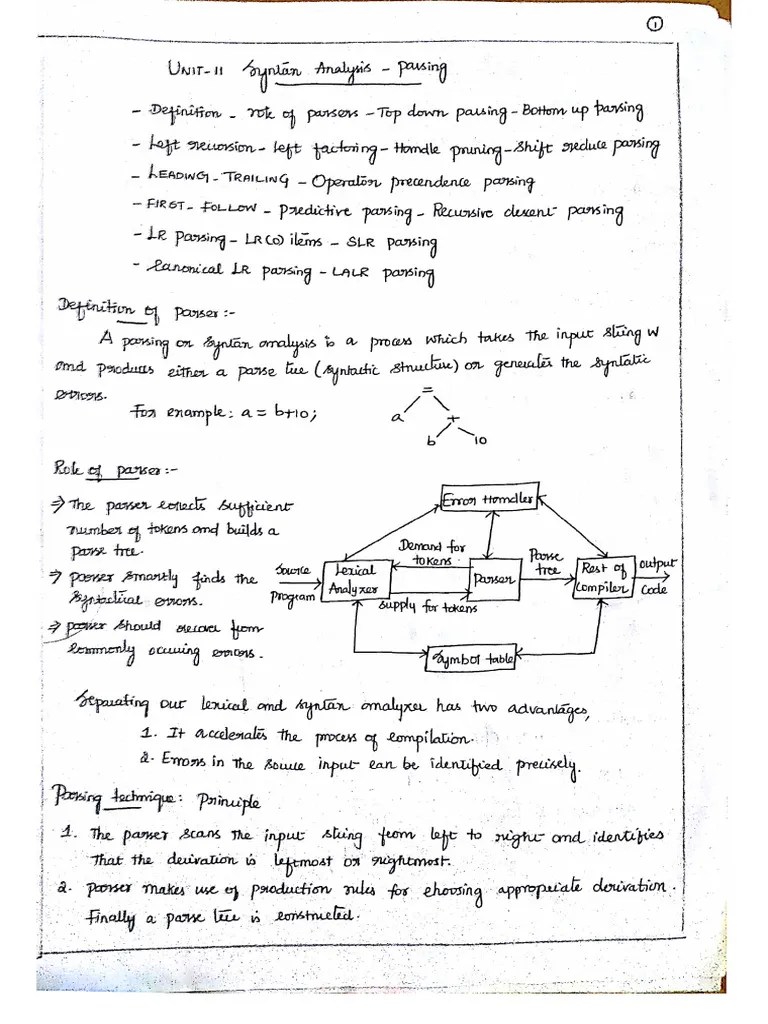 1
UNIT-II Syntax Analysis - parsing
- Definition - role of parsers - Top down parsing - Bottom up parsing
- Left recursion - left factoring - Handle pruning - Shift reduce parsing
- LEADING - TRAILING - Operator precendence parsing
- FIRST - FOLLOW - predictive parsing - Recursive descent parsing
- LR parsing - LR(0) items - SLR parsing
- Canonical LR parsing - LALR parsing
Definition of parser :-
A parsing or syntax analysis is a process which takes the input string w
and produces either a parse tree (syntactic structure) or generates the syntatic
errors.
For example: a = b+10;
=
a +
b 10
Role of parser:-
⇒ The parser collects sufficient
number of tokens and builds a
parse tree.
⇒ parser smartly finds the
syntactical errors.
⇒ parser should recover from
commonly occuring errors.
Error Handler
Demand for
tokens
Source
program
Lexical
Analyzer
Parser
Parse
tree
Rest of
compiler
output
code
supply for tokens
Symbol table
Separating out lexical and syntax analyzer has two advantages,
1. It accelerates the process of compilation.
2. Errors in the source input can be identified precisely.
Parsing technique: Principle
1. The parser scans the input string from left to right and identifies
that the derivation is leftmost or rightmost.
2. parser makes use of production rules for choosing appropriate derivation.
Finally a parse tree is constructed.